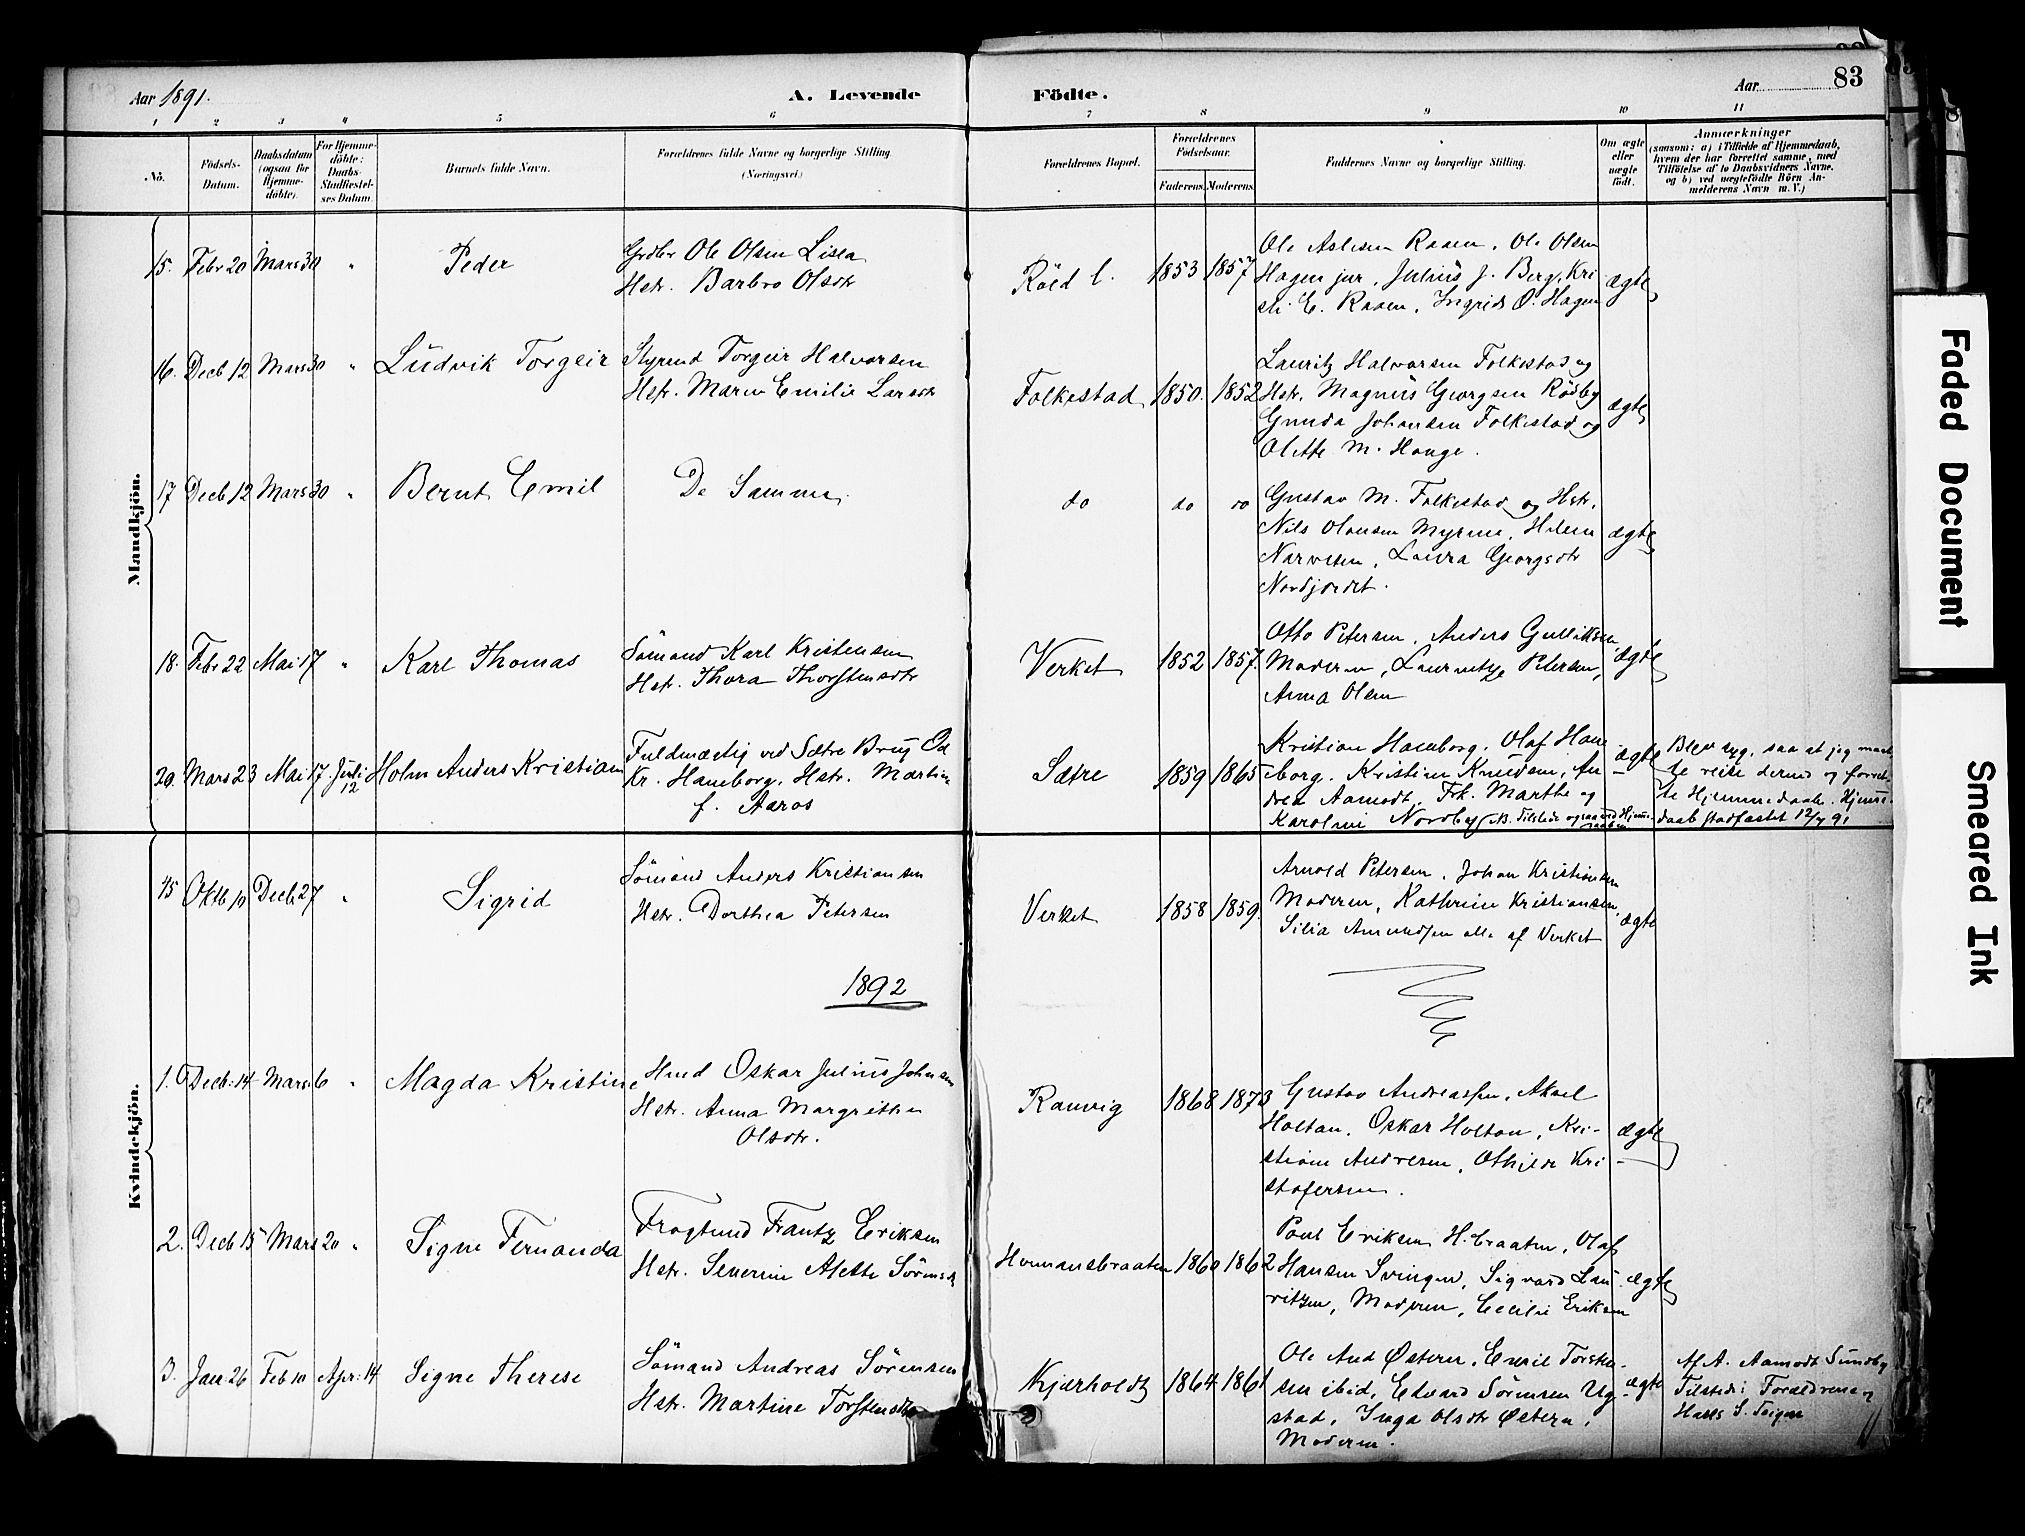 83
Aar 1891.
A. Levende Födte.
Aar
1 2 3 4 5 6 7 8 9 10 11
No.
Födsels-
Datum.
Daabsdatum
(ogsaa for
Hjemme-
döbte).
For Hjemme-
döbte:
Daabs-
Stadfæstel-
ses Datum.
Barnets fulde Navn.
Forældrenes fulde Navne og borgerlige Stilling.
(Næringsvei.)
Forældrenes Bopæl.
Forældrenes
Födselsaar.
Faderens. Moderens.
Faddernes Navne og borgerlige Stilling.
Om ægte
eller
uægte
födt.
Anmærkninger
(saasom: a) i Tilfælde af Hjemmedaab,
hvem der har forrettet samme, med
Tilföielse af to Daabsvidners Navne,
og b) ved uægtefödte Börn An-
melderens Navn m. V.)
Mandkjön.
15. Febr 20 Mars 30 "
Peder
Grdbr Ole Olsen Lisla
Hstr. Barbro Olsdtr
Röed l.
1853 1857
Ole Aslesen Raaen, Ole Olsen
Hagen jur, Julius J. Berg, Kri
sti E. Raaen, Ingrid O. Hagen
ægte
16. Decb 12 Mars 30 "
Ludvik Torgeir
Styrmd Torgeir Halvorsen
Hstr. Maren Emilie Larsdtr
Folkestad
1850. 1852
Lauritz Halvorsen Folkestad og
Hstr. Magnus Georgsen Rödby
Gunda Johansen Folkestad og
Olette M. Hauge.
ægte
17 Decb 12 Mars 30 "
Bernt Emil
De Samme
do do do
Gustav M. Folkestad og Hstr.
Nils Olausen Myrene, Helene
Narvesen, Laura Georgsdtr
Nordjordet.
ægte
18. Febr 22 Mai 17 "
Karl Thomas
Sömand Karl Kristensen
Hstr. Thora Thorstensdtr
Verket
1852 1857.
Otto Petersen, Anders Gulliksen,
Moderen, Laurentze Petersen,
Anna Olsen
ægte
20. Mars 23 Mai 17. Juli 12
Holm Anders Kristian
Fuldmægtig ved Sætre Brug Od
Kr. Haneborg, Hstr. Martine
f. Aaros
Sætre
1859 1865
Kristian Haneborg, Olaf Hane
borg. Kristine Knudsen, An
drea Aamodt, Frk. Marthe og
Karoline Nordby
ægte
Blev syg, saa at jeg maat
te reise derned og forret
te Hjemmedaab. Hjemme-
daab stadfæstet 12/7 91
Kvindekjön.
45 Oktb 10 Decb 27 "
Sigrid
Sömand Anders Kristiansen
Hstr. Dorthea Petersen
Verket
1858 1859.
Arnold Petersen, Johan Kristiansen
Moderen, Kathrine Kristiansen,
Silia Amundsen alle af Verket
ægte
1892
1. Decb. 14 Mars 6 "
Magda Kristine
Hmd Oskar Julius Johnsen
Hstr. Anna Margrethe
Olsdtr.
Ramvig
1868 1873
Gustav Andreassen, Aksel
Holtan, Oskar Holtan, Kri-
stiane Andresen, Othilde Kri-
stofersen.
ægte
2. Decb 15 Mars 20 "
Signe Fernanda
Fragtmd Frantz Eriksen
Hstr. Severine Alette Sörensdtr
Homansbraaten
1860 1862
Poul Eriksen H.braaten, Olaf
Hansen Svingen, Sigvard Lau
ritzen, Moderen, Cecilie Eriksen
ægte
3. Jan. 26 Feb 10 Apr. 14
Signe Therese
Sömand Andreas Sörensen
Hstr. Martine Torstensdtr
Kjærholdt
1864 1861
Ole And Østeren, Emil Torsten-
sen ibid, Edvard Sörensen Ug-
stad, Inga Olsdtr Østern,
Moderen.
ægte
Af A. Aamodt Sundby
Tilstede: Forældrene og
Hans S. Teigen
Faded Document
Smeared Ink